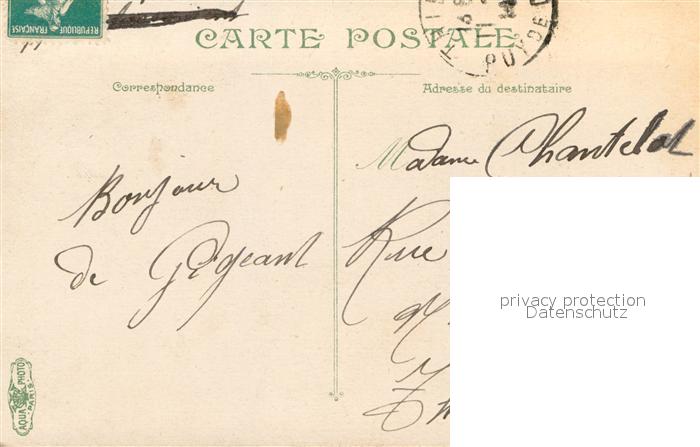 REPUBLIQUE FRANÇAISE
CARTE POSTALE
PUY DE
Correspondance
Adresse du destinataire
Madame Chantelat
Bonjour
de
Rue
privacy protection
Datenschutz
AQUA PHOTO
PARIS